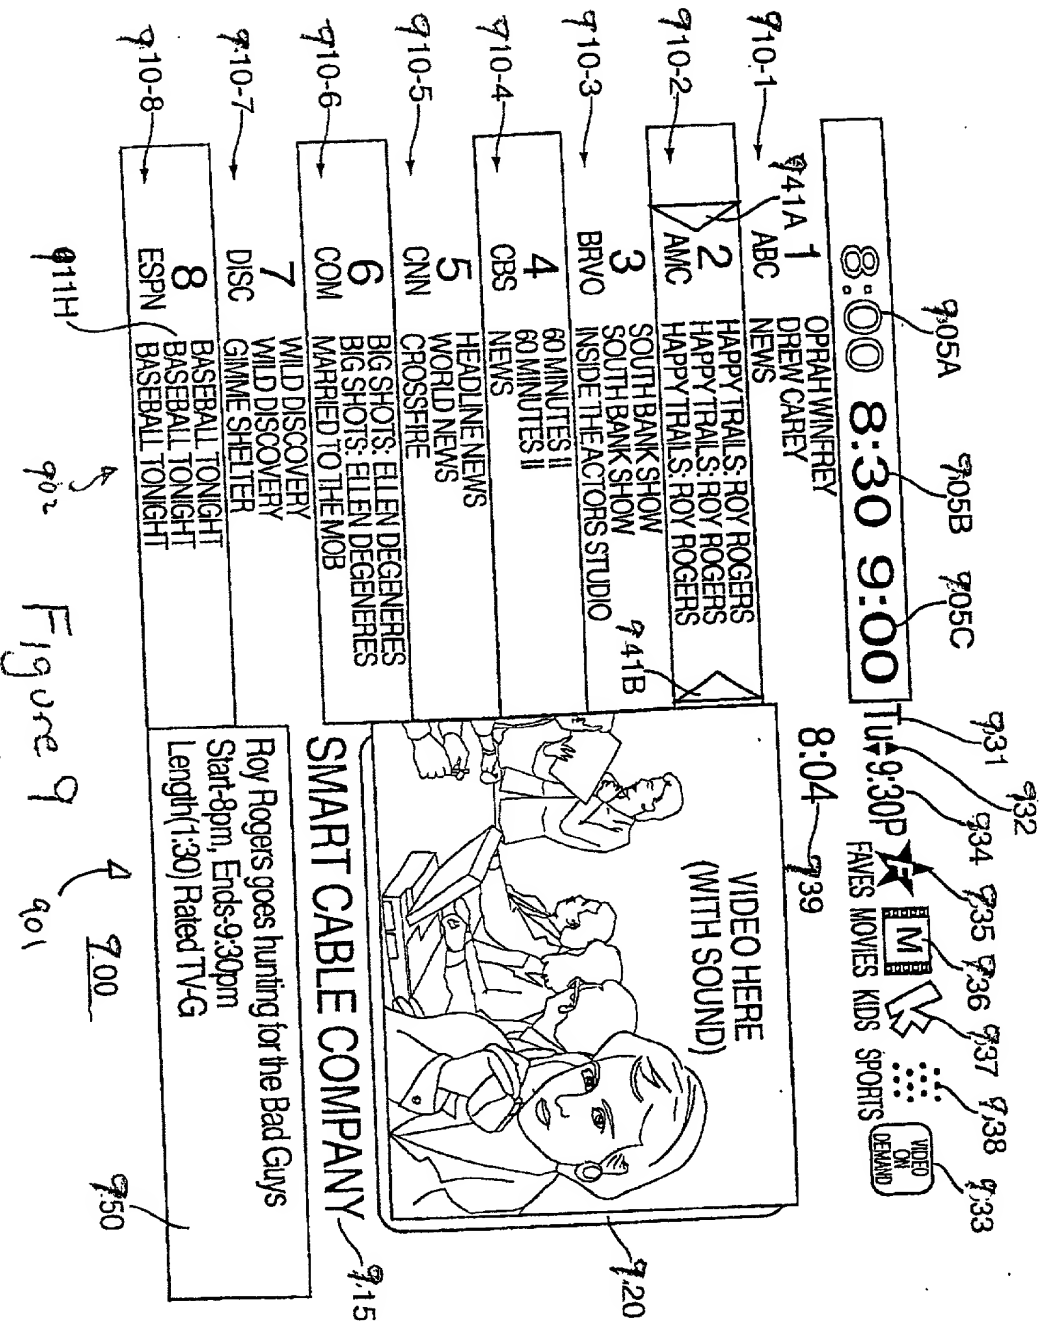 905A
905B
905C
931
932
934
935
936
937
938
933
8:00 8:30 9:00
Tu 9:30P
F
FAVES
M
MOVIES
KIDS
SPORTS
VIDEO
ON
DEMAND
8:04
939
910-1
941A
1
ABC
OPRAH WINFREY
DREW CAREY
NEWS
910-2
2
AMC
HAPPY TRAILS: ROY ROGERS
HAPPY TRAILS: ROY ROGERS
HAPPY TRAILS: ROY ROGERS
910-3
3
BRVO
SOUTH BANK SHOW
SOUTH BANK SHOW
INSIDE THE ACTORS STUDIO
941B
910-4
4
CBS
60 MINUTES II
60 MINUTES II
NEWS
910-5
5
CNN
HEADLINE NEWS
WORLD NEWS
CROSSFIRE
910-6
6
COM
BIG SHOTS: ELLEN DEGENERES
BIG SHOTS: ELLEN DEGENERES
MARRIED TO THE MOB
910-7
7
DISC
WILD DISCOVERY
WILD DISCOVERY
GIMME SHELTER
910-8
8
ESPN
BASEBALL TONIGHT
BASEBALL TONIGHT
BASEBALL TONIGHT
911H
VIDEO HERE
(WITH SOUND)
920
SMART CABLE COMPANY
915
Roy Rogers goes hunting for the Bad Guys
Start-8pm, Ends-9:30pm
Length(1:30) Rated TV-G
950
902
Figure 9
901
900